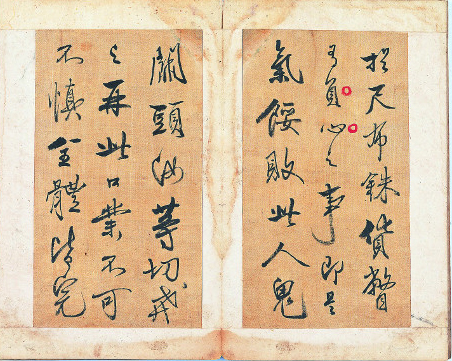 尺布銖貨瞥
有負心之事即是
氣餒敗此人鬼
關頭汝等切戒
之再此口業不可
不慎全體清完